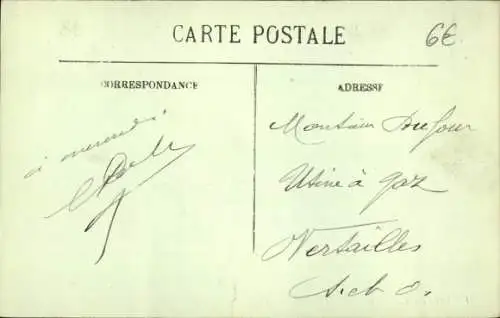 CARTE POSTALE
6€
CORRESPONDANCE
ADRESSE
à
Monsieur Dufour
Usine à gaz
Versailles
S. et O.